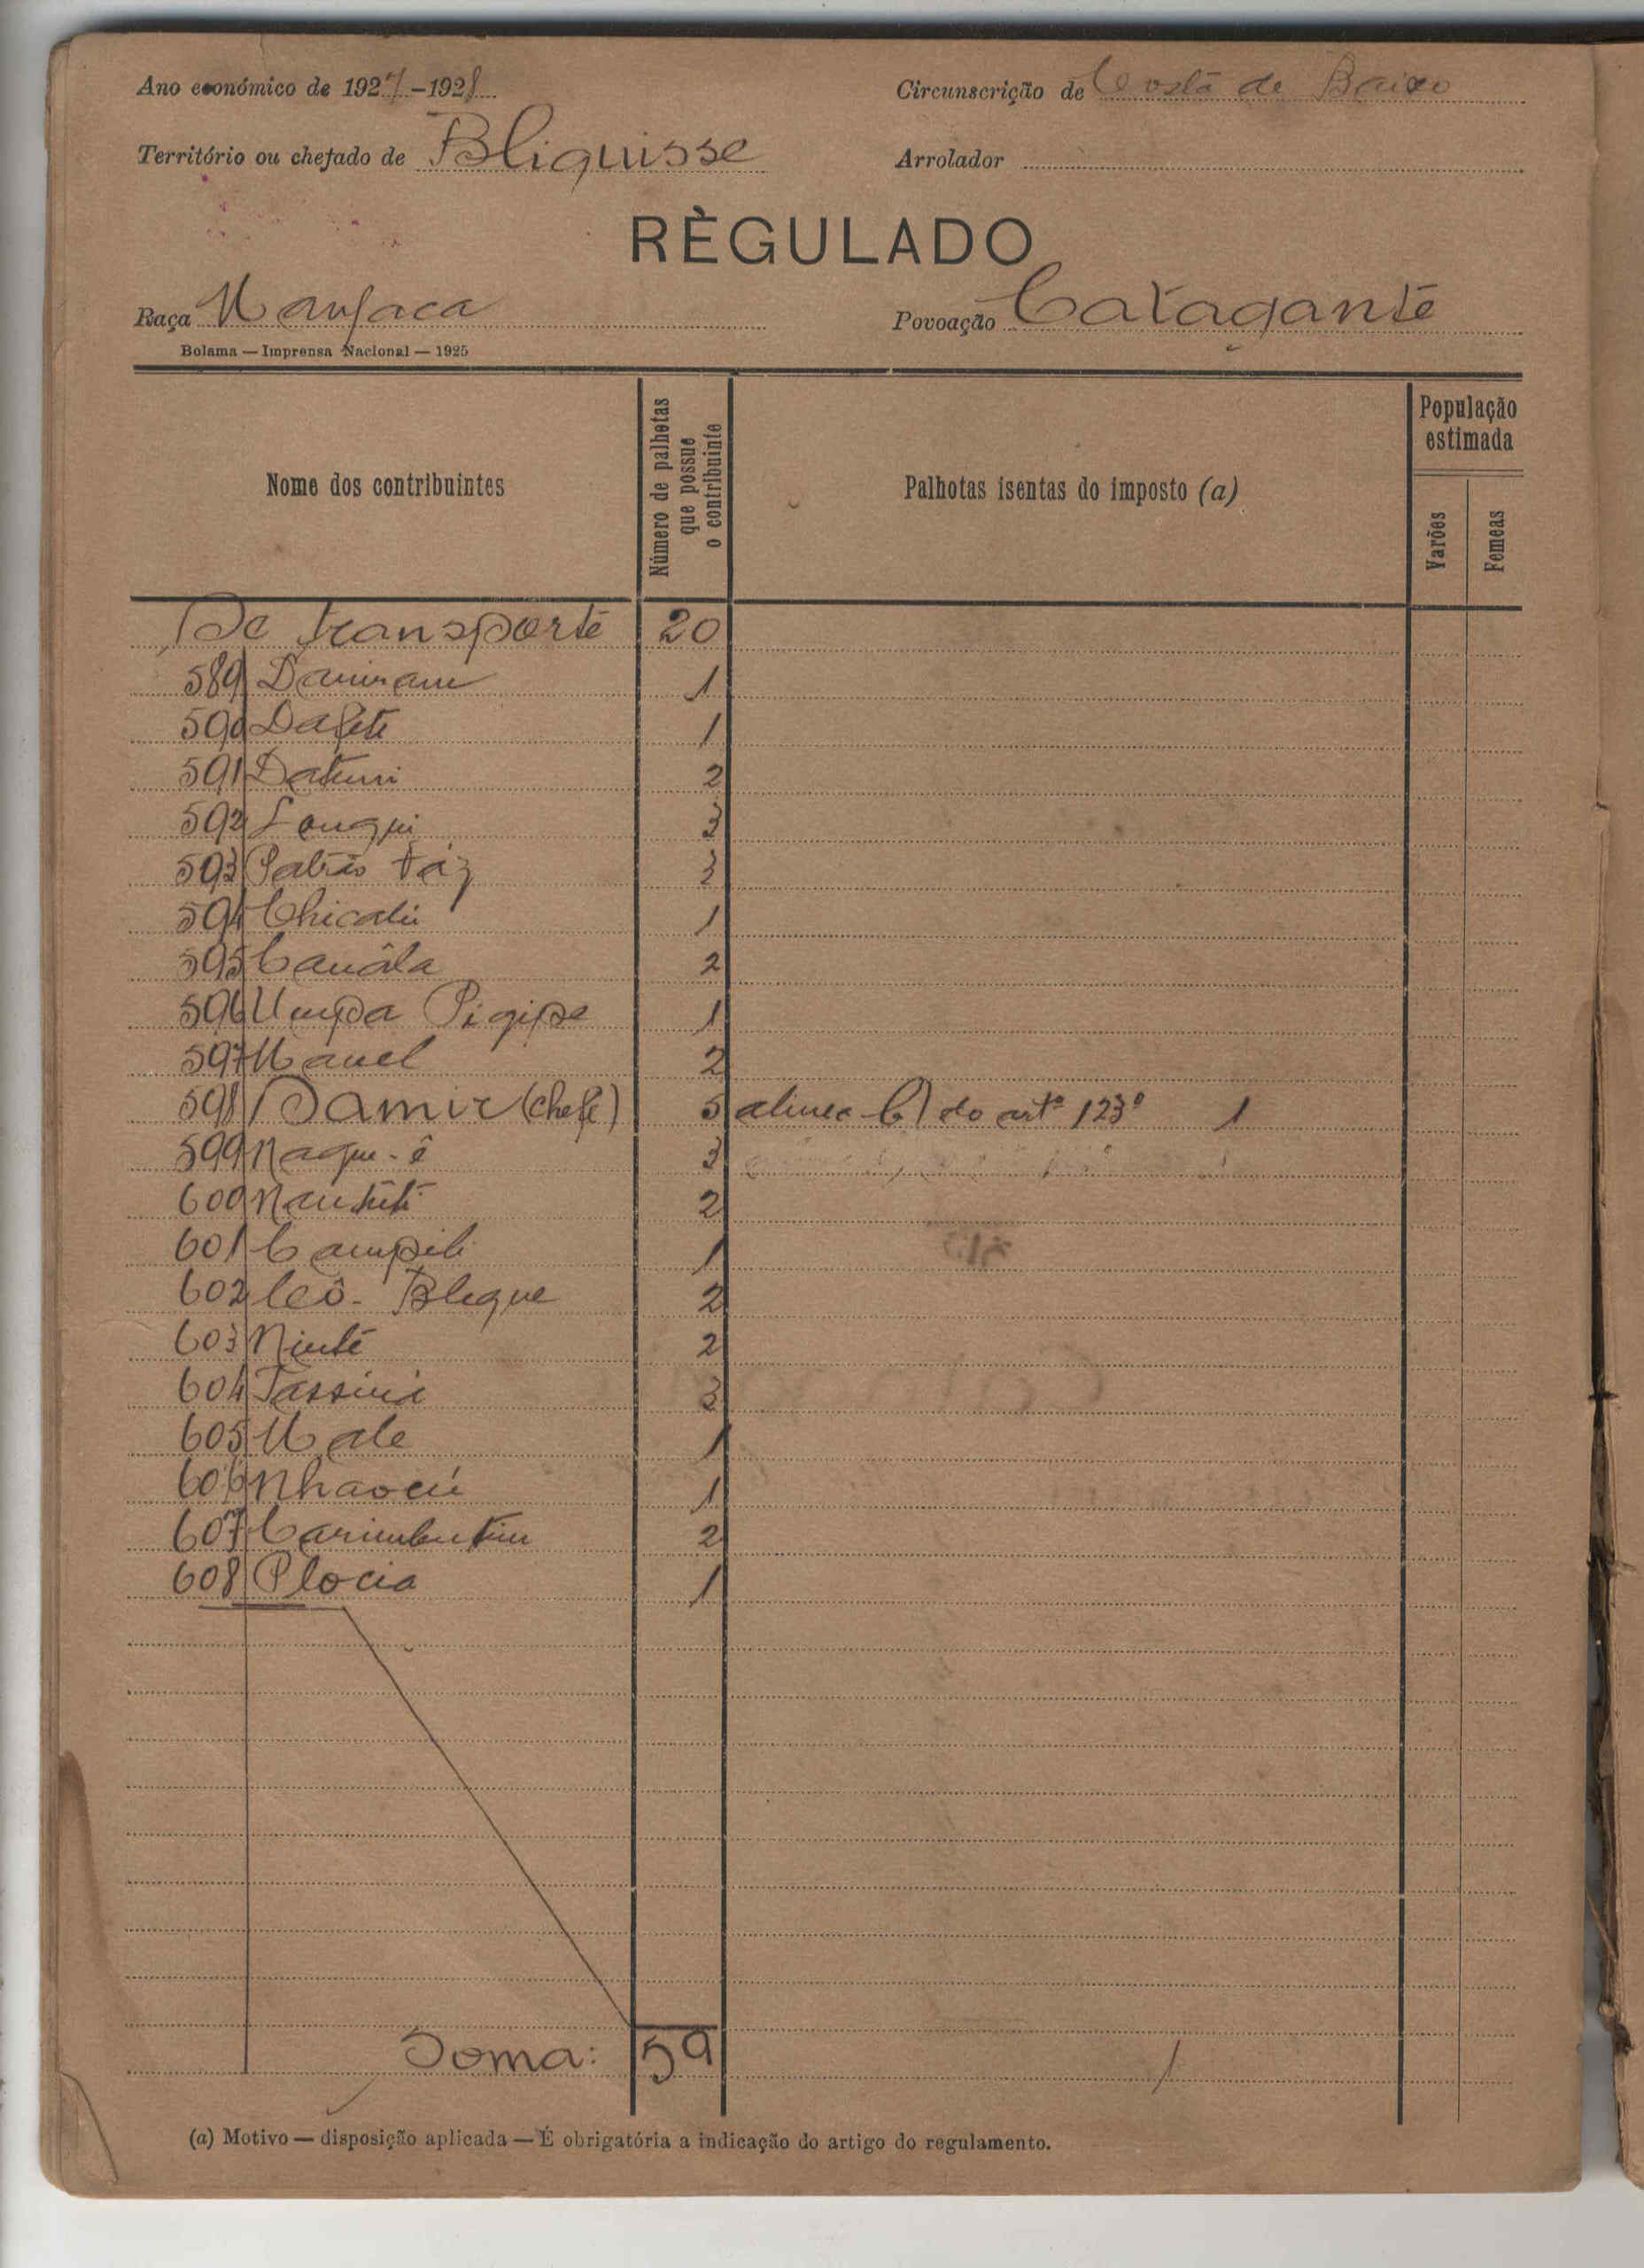 Ano económico de 1927-1928 Circunscrição de Costa de Baixo
Território ou chefado de Bliquisse Arrolador
RÈGULADO
Raça Manjaca Povoação Catagante
Bolama — Imprensa Nacional — 1925
Nome dos contribuintes
Número de palhotas que possue o contribuinte
Palhotas isentas do imposto (a)
População estimada
Varões
Femeas
De transporte 20
589 1
590 Dafete 1
591 Datuni 2
592 3
593 Patrão Váz 3
594 1
595 Canála 2
596 Umpa Pigipe 1
597 Manel 2
598 Damir (chefe) 5 alinea C) do artº 123º 1
599 Naque-ê 3
600 2
601 Campili 1
602 Leô-Bleque 2
603 Niuté 2
604 Tassiná 3
605 Male 1
606 Nhaocú 1
607 Carimbutim 2
608 Plocia 1
Soma: 59 1
(a) Motivo — disposição aplicada — É obrigatória a indicação do artigo do regulamento.